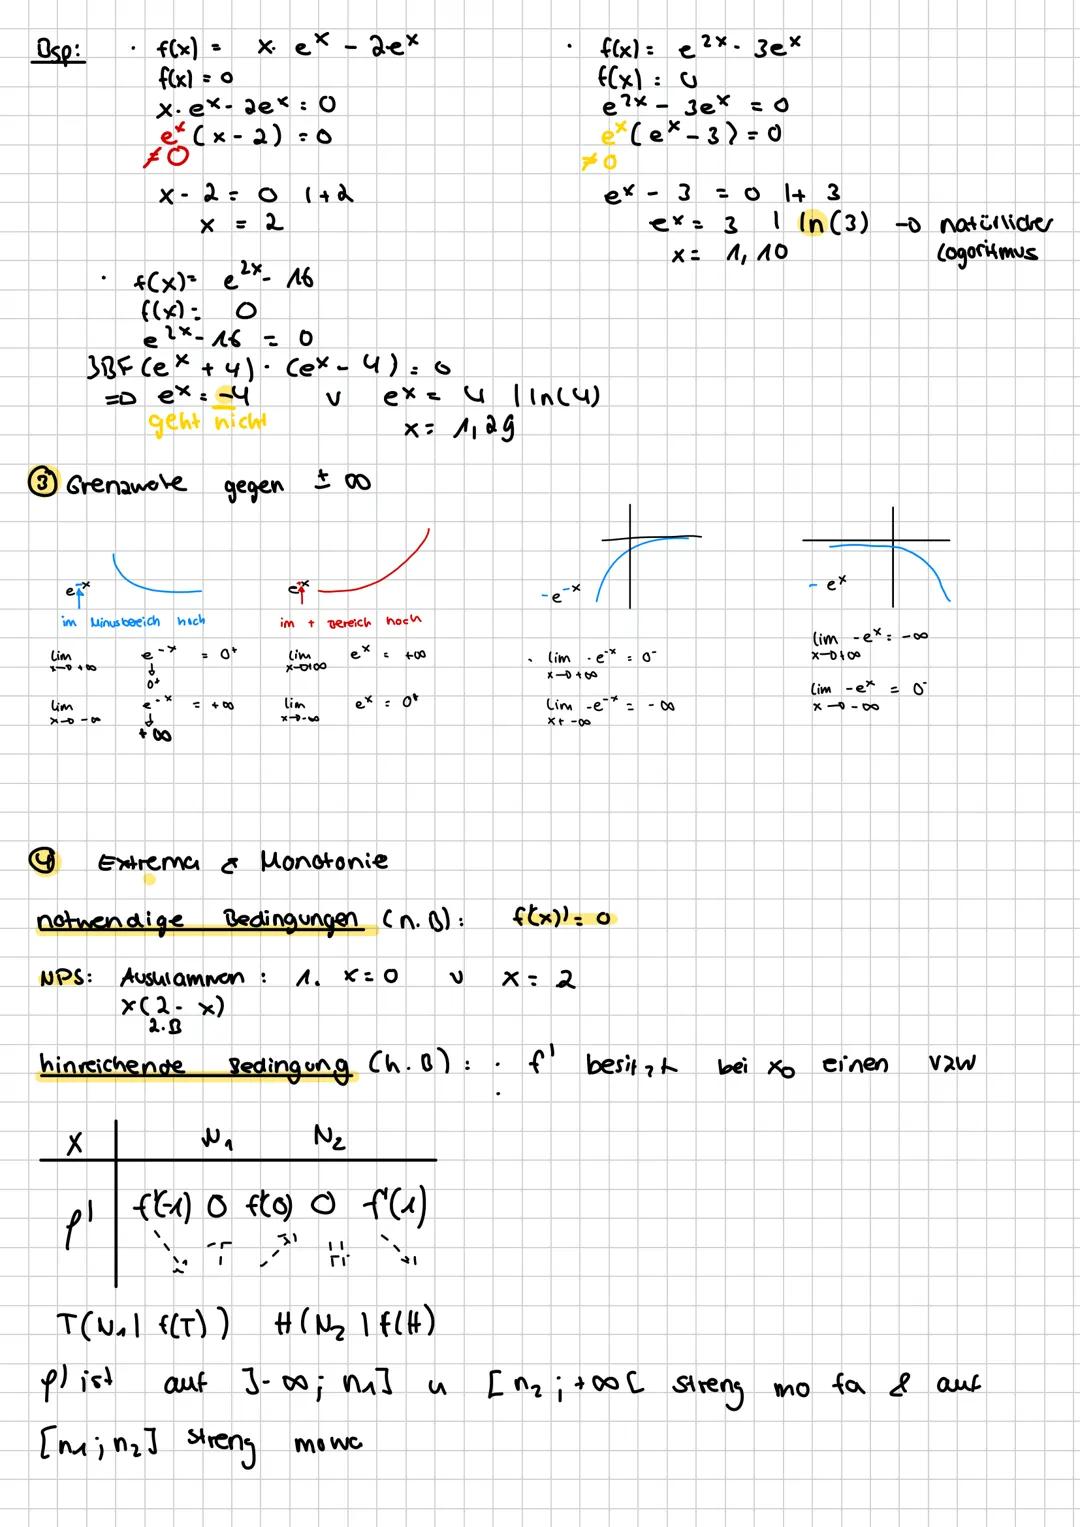 Bsp:
· f(x) = x · e^x - 2e^x
f(x) = 0
x · e^x - 2e^x = 0
e^x (x - 2) = 0
≠ 0
x - 2 = 0 | + 2
x = 2
· f(x) = e^2x - 3e^x
f(x) = 0
e^2x - 3e^x = 0
e^x (e^x - 3) = 0
≠ 0
e^x - 3 = 0 | + 3
e^x = 3 | ln(3) → natürlicher
Logorithmus
x = 1,10
· f(x) = e^2x - 16
f(x) = 0
e^2x - 16 = 0
3BF (e^x + 4) · (e^x - 4) = 0
⇒ e^x = -4 v e^x = 4 | ln(4)
geht nicht
x = 1,29
③ Grenzwerte gegen ± ∞
e^-x
im Minusbereich hoch
lim x→+∞ e^-x = 0⁺
↓
0⁺
lim x→-∞ e^-x = +∞
↓
+∞
e^x
im + Bereich hoch
lim x→+∞ e^x = +∞
lim x→-∞ e^x = 0⁺
-e^-x
· lim x→+∞ -e^-x = 0⁻
lim x+ -∞ -e^-x = -∞
- e^x
lim x→+∞ -e^x = -∞
lim x→-∞ -e^x = 0⁻
④ Extrema & Monotonie
notwendige Bedingungen (n.B): f'(x) = 0
NPS: Ausklammen: 1. x = 0 v x = 2
x(2 - x)
z.B
hinreichende Bedingung (h.B): · f' besitzt bei x₀ einen VZW
·
x N₁ N₂
f' f'(-1) 0 f'(0) 0 f'(1)
T H
T(N₁ | f(T)) H(N₂ | f(H)
f) ist auf ]-∞; n₁] u [n₂; +∞[ streng mo fa & auf
[n₁; n₂] streng mowa